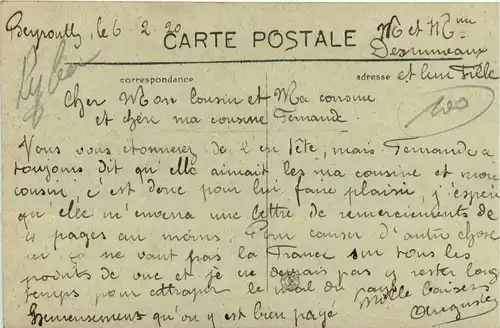 Beyrouth, le 6 2 20
M et Mme
CARTE POSTALE
Desrumeaux
correspondance
adresse
et leur Fille
Cher Mon Cousin et Ma cousine
et chère ma cousine Fernande
100
Vous vous étonnerez de l'en tête, mais Fernande a
toujours dit qu'elle aimait les ma cousine et mon
cousin, c'est donc pour lui faire plaisir, j'espère
qu'elle m'enverra une lettre de remerciements de
4 pages au moins. Pour causer d'autre chose
ici ça ne vaut pas la France sur tous les
points de vue et je ne desirais pas y rester long
temps pour attraper le mal du pays
Heureusement qu'on y est bien payé
Mille baisers
Auguste